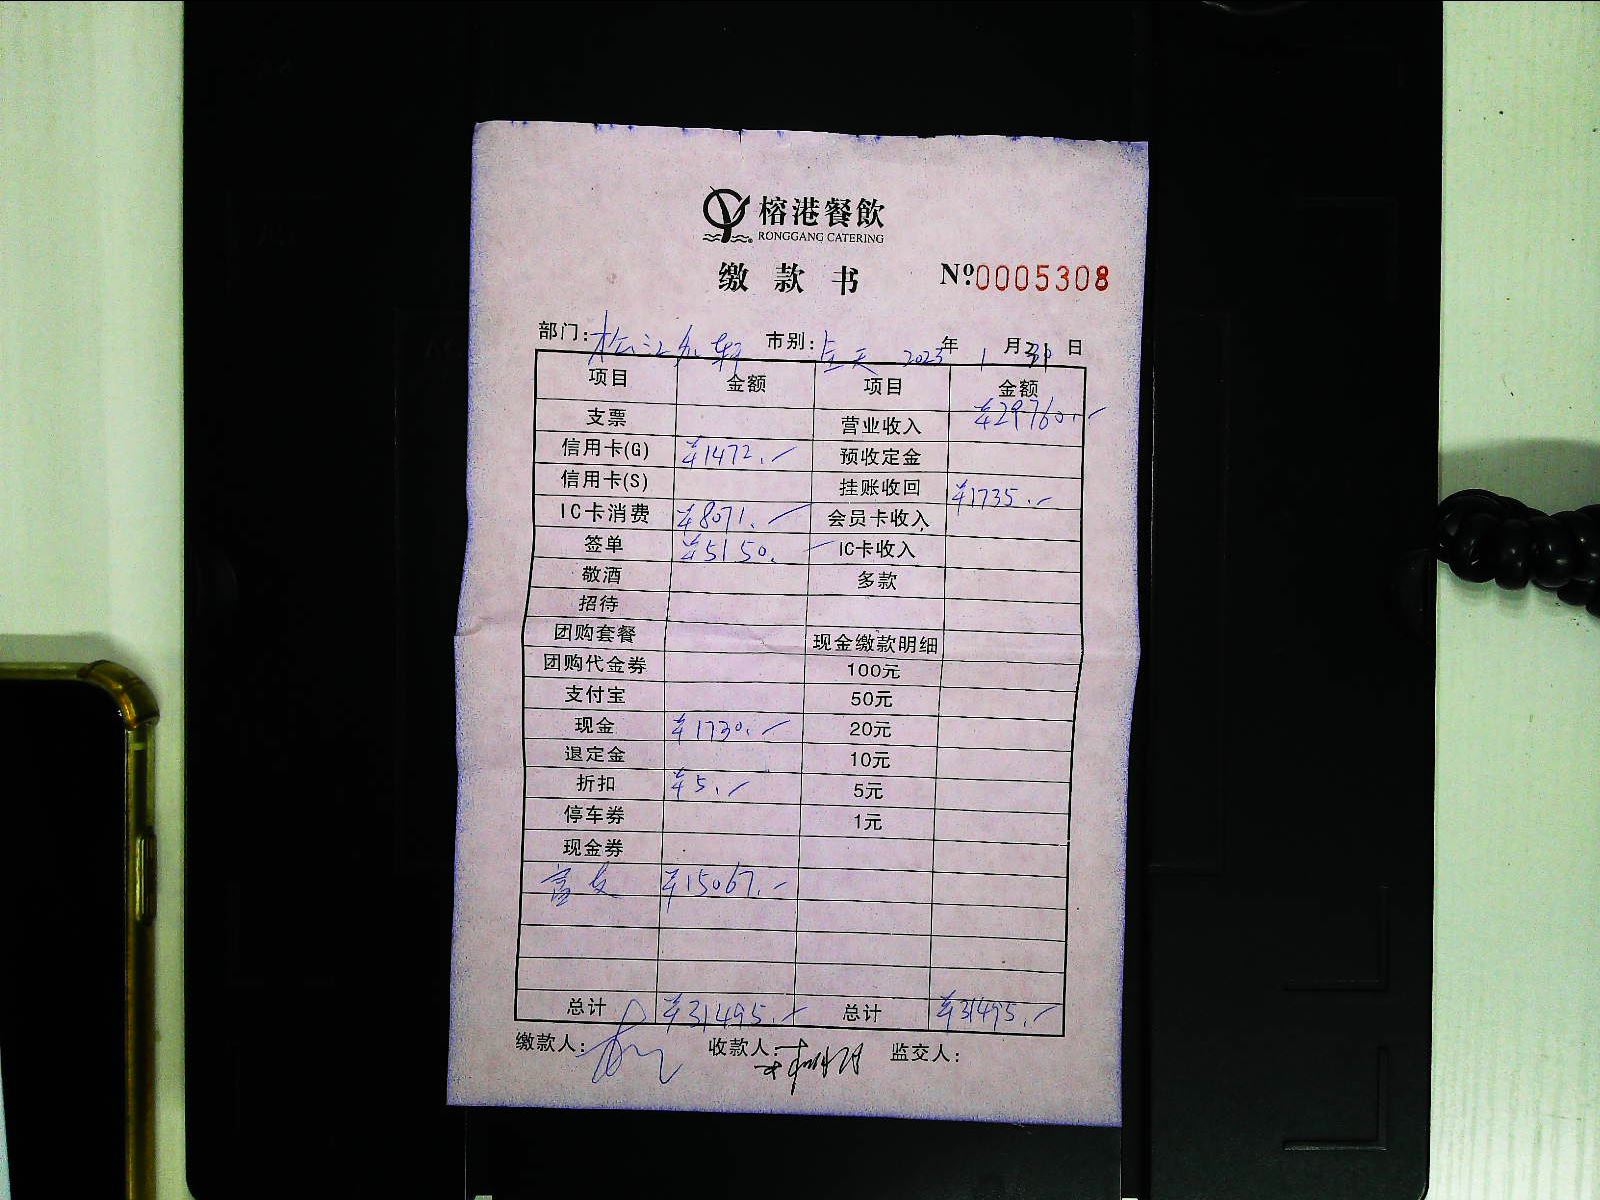 榕港餐飲
RONGGANG CATERING
缴款书 Nº:0005308
部门: 松江 轩 市别: 全天 2023年 1月 日
项目 金额 项目 金额
支票 营业收入 ¥29760.-
信用卡(G) ¥1472.- 预收定金
信用卡(S) 挂账收回 ¥1735.-
IC卡消费 ¥8071.- 会员卡收入
签单 ¥5150.- IC卡收入
敬酒 多款
招待
团购套餐 现金缴款明细
团购代金券 100元
支付宝 50元
现金 ¥1730.- 20元
退定金 10元
折扣 ¥5.- 5元
停车券 1元
现金券
富友 ¥15067.-
总计 ¥31495.- 总计 ¥31495.-
缴款人: 收款人: 监交人: